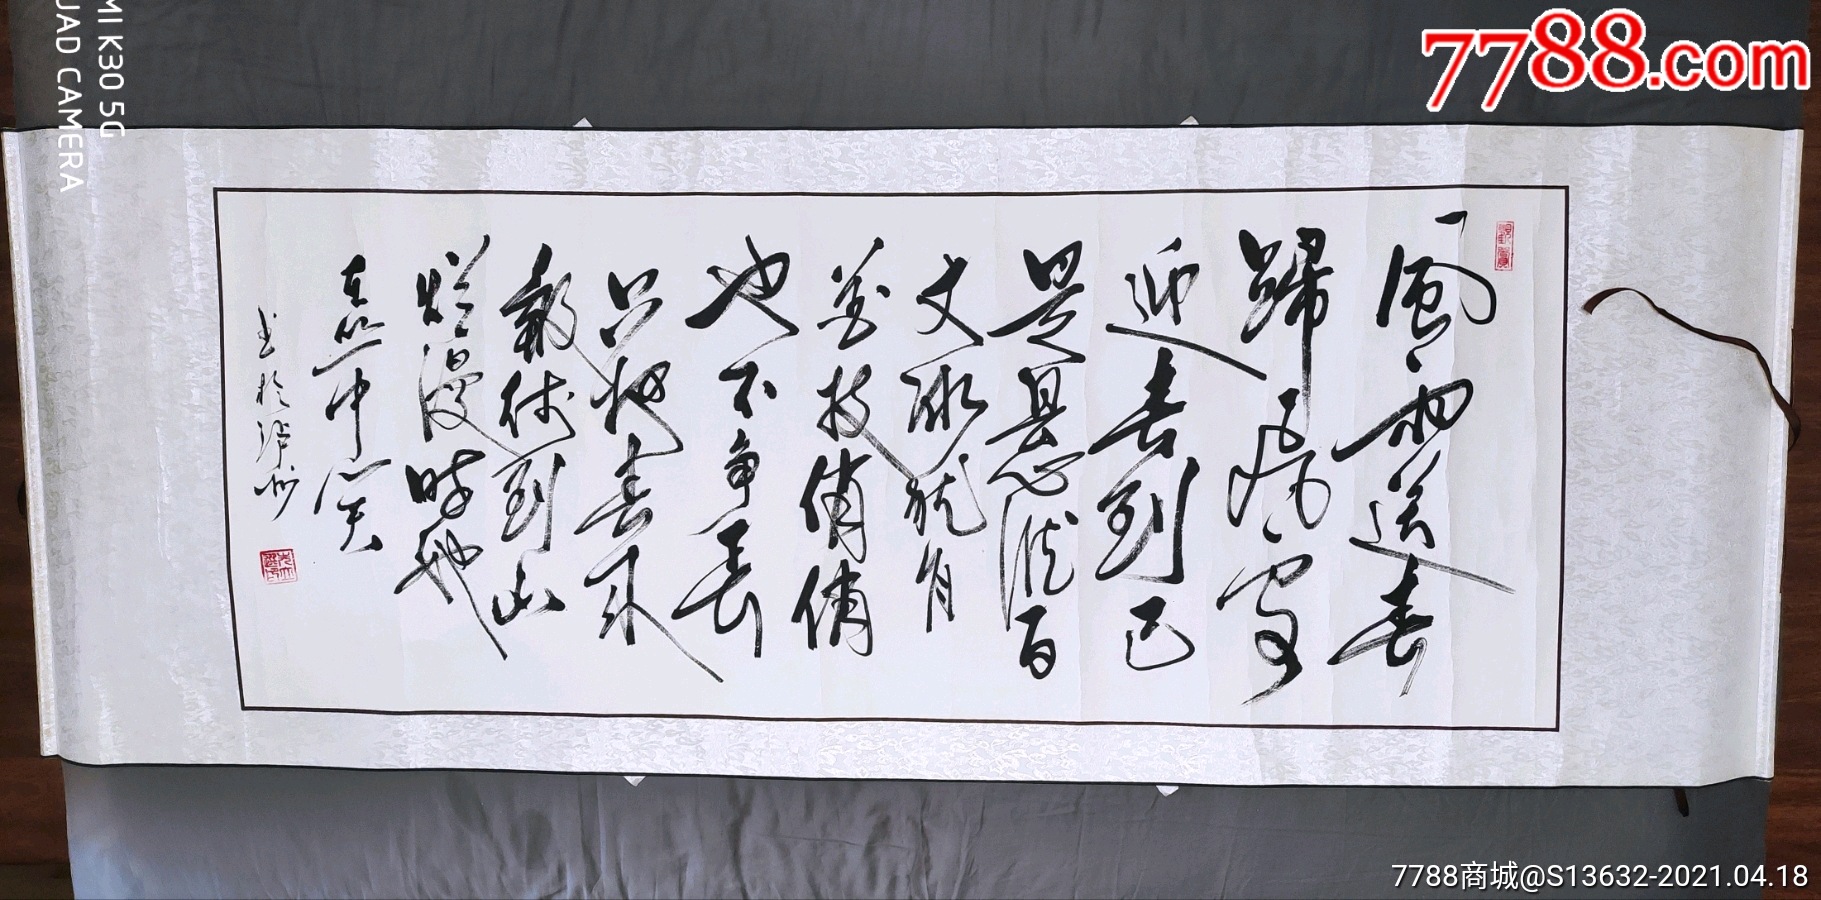 7788.com
MI K30 5G
UAD CAMERA
風雨送春
歸飛雪
迎春到已
是悬崖百
丈冰犹有
花枝俏俏
也不争春
只把春来
報待到山
烂漫時她
在丛中笑
书於泸州
7788商城@S13632-2021.04.18